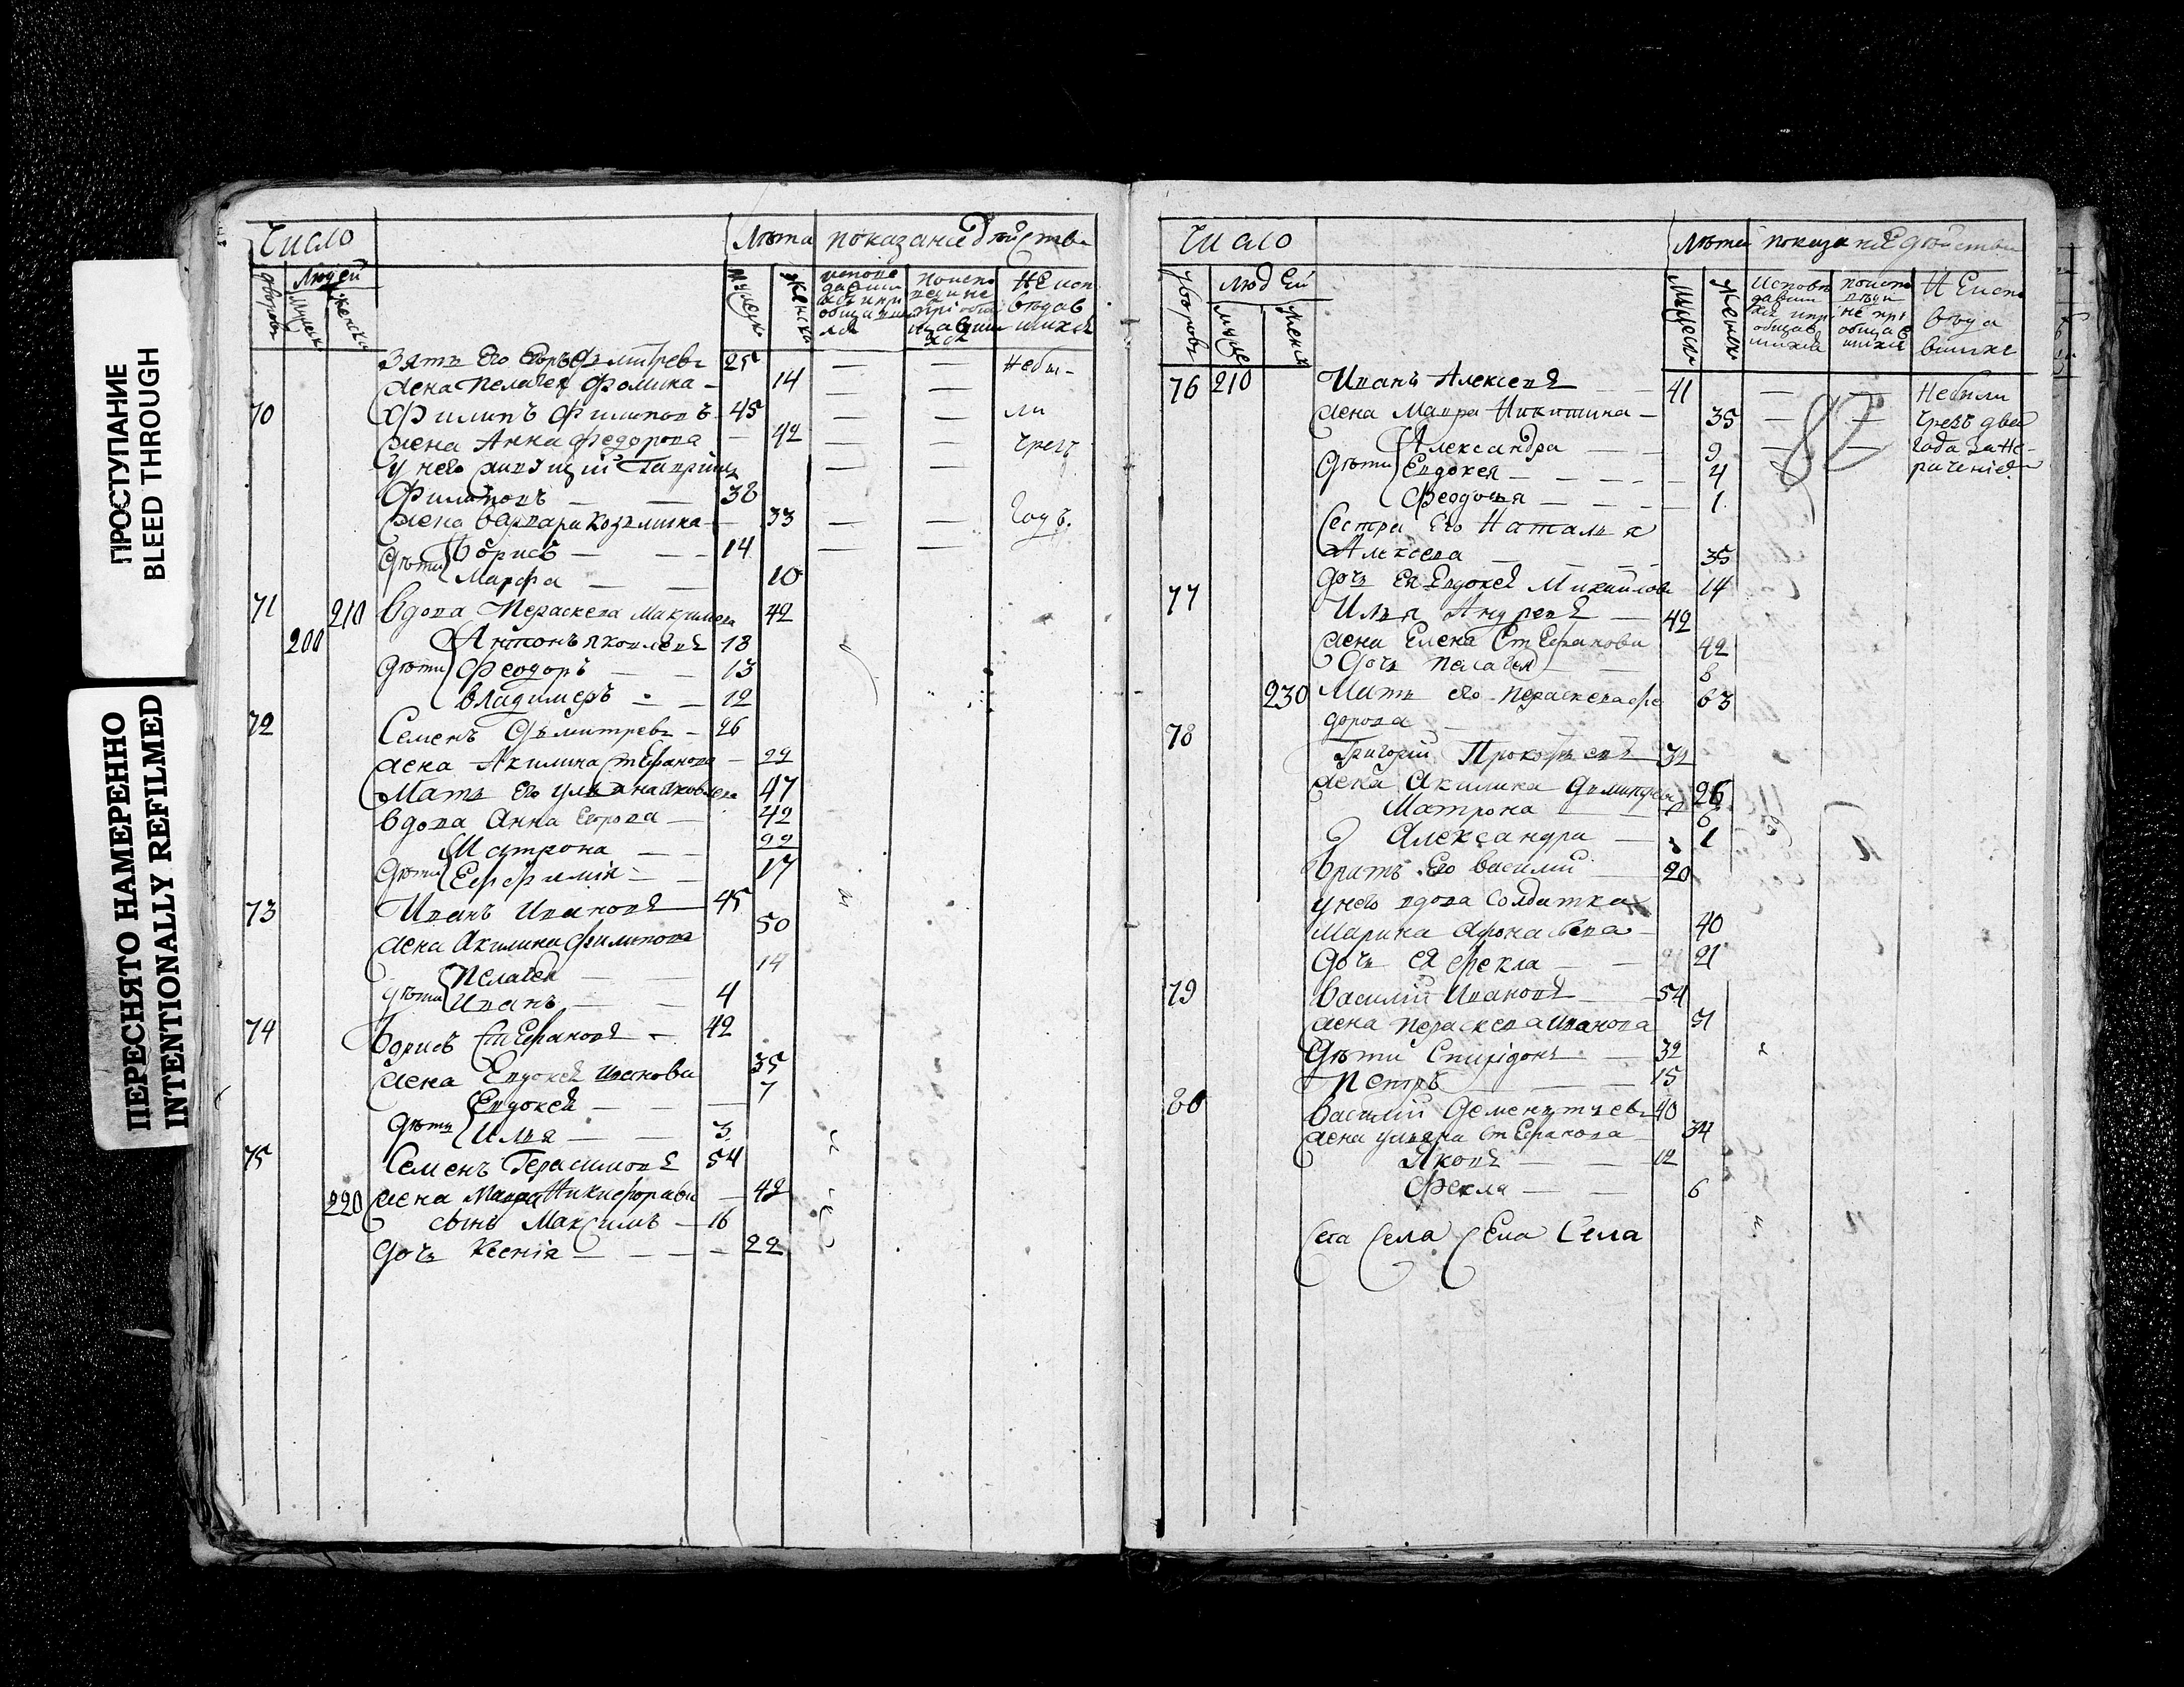 ПРОСТУПАНИЕ
BLEED THROUGH
ПЕРЕСНЯТО НАМЕРЕННО
INTENTIONALLY REFILMED
Число Лѣта показание дѣйства
дворовъ Людей Мужска Женска Мужска Женска
Зять его Егоръ Дмитревъ 25 — — небы-
жена Пелагея Фомина — 14 — —
70 Филипъ Филиповъ 45 — — ли
жена Анна Федорова — 42 — — чрезъ
у него живущий Гаврила — —
Филиповъ — — 38
жена Варвара Козьмина — 33 — — годъ.
дѣти Борисъ — — — 14 — —
Марфа — — 10
71 210 вдова Пераскева Максимова 42
200 Антонъ Яковлевъ 18
дѣти Феодоръ — — 13
Владимеръ — — 12
72 Семенъ Дьмитревъ — 26
жена Акилина Стефанова — 22
Мать его Ульяна Яковлева 47
вдова Анна Егорова — 42
Матрона — — 22
дѣти Ефимия — — 17
73 Иванъ Ивановъ — 45
жена Акилина Филипова 50
Пелагея — — 14
дѣти Иванъ — — 4
74 Борисъ Стефановъ — 42
жена Евдокея Иванова 35
Евдокея — — — 7
дѣти Илья — — 3
75 Семенъ Герасимовъ 54
220 жена Мавра Никифорава — 42
сынъ Максимъ — 16
дочь Ксенія — — — 22
Число Лѣта показание дѣйства
дворовъ людей мужс женск Мужеска Женска
76 210 Иванъ Алексеевъ — 41 — — Небыли
жена Мавра Никитина — 35 — — чрезъ два
Александра — — 9 — — года за не-
дѣти Евдокея — — — — 4 рачениемъ
Феодосья — — — 1
82
Сестра его Наталья
Алексеева — — — 35
дочь ея Евдокея Михайлова 14
77 Илья Андреевъ — 42
жена Елена Стефанова 42
дочь Пелагея — — 8
230 Мать его Пераскева Фе
дорова —
63
78 Григорий Прокофьевъ 32
жена Акилина Дьмитрева 26
Матрона — — 6
Александра — 1
братъ его Василий — 20
у него вдова солдатка
Марина Афонасьева — 40
дочь ея Фекла — — 21
79 Василий Ивановъ — 54
жена Пераскева Иванова 51
дѣти Спиридонъ — 32
Петръ — — — 15
80 Василий Дементьевъ 40
жена Ульяна Стефанова — 34
Яковъ — — 12
Фекла — — 6
Села Села Села Села